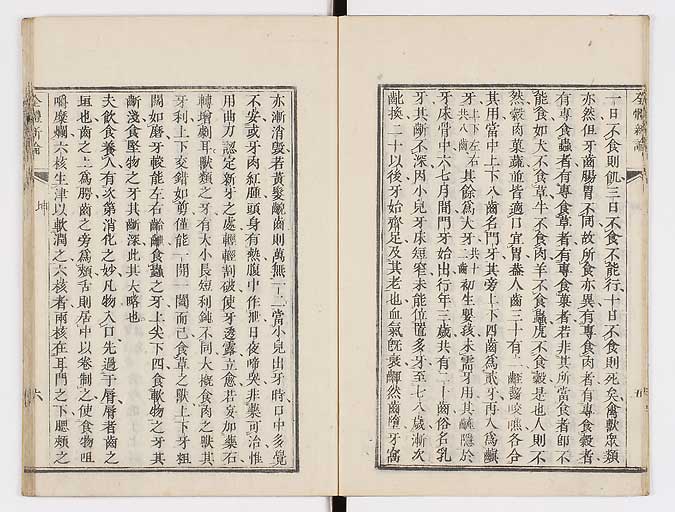 一日不食則飢三日不食不能行十日不食則死矣禽獸眾類
亦然但牙齒腸胃不同故所食亦異有專食肉者有專食穀者
有專食蟲者有專食草者有專食菓者若非其所當食者卽不
能食如犬不食草牛不食肉羊不食蟲虎不食穀是也人則不
然穀肉菓蔬並皆適口宜胃蓋人齒三十有二齜齧咬嚼各合
其用當中上下八齒名門牙其旁上下四齒為虎牙再入為
牙上下左右共八齒其餘為大牙共十二齒初生嬰孩未需牙用其齒隱於
牙床骨中六七月間門牙始出行年三歲共有二十齒俗名乳
牙其齗不深因小兒牙床短窄未能位置多牙至七八歲漸次
齓換二十以後牙始齊足及其老也血氣旣衰齒墮牙窩
亦漸消毀若黃髮齒則萬無一二當小兒出牙時口中多覺
不安或牙肉紅腫頭身有熱腹中作泄日夜啼哭非藥可治惟
用曲刀認定新牙之處輕輕割破使牙透露立愈若妄加藥石
轉增劇耳獸類之牙有大小長短利鈍不同大槪食肉之獸其
牙利上下交錯如剪僅能一開一闔而已食草之獸上下牙粗
闊如磨牙較能左右齝食蟲之牙上尖下四食軟物之牙其
齗淺食堅物之牙其齗深此其大略也
夫飲食養人有次第消化之妙凡物入口先過于脣脣者齒之
垣也齒之上為腭齒之旁為頰舌則居中以卷制之使食物咀
嚼糜爛六核生津以軟潤之六核者兩核在耳門之下腮頰之
全體新論
坤
六
全體新論
五